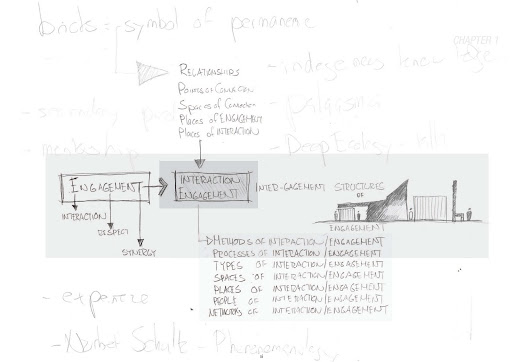 bricks = symbol of permanence
CHAPTER 1
RELATIONSHIPS
- indigenous
POINTS OF CONNECTION
SPACES OF CONNECTION
PLACES OF ENGAGEMENT
PLACES OF INTERACTION
- Deep Ecology
- mentorship
ENGAGEMENT
INTERACTION
ENGAGEMENT
INTER-GAGEMENT STRUCTURES
OF
ENGAGEMENT
INTERACTION
SYNERGY
METHODS OF INTERACTION/ENGAGEMENT
PROCESSES OF INTERACTION/ENGAGEMENT
TYPES OF INTERACTION/ENGAGEMENT
SPACES OF INTERACTION/ENGAGEMENT
PLACES OF INTERACTION/ENGAGEMENT
PEOPLE OF INTERACTION/ENGAGEMENT
NETWORKS OF INTERACTION/ENGAGEMENT
- expertize
- Phenomenology